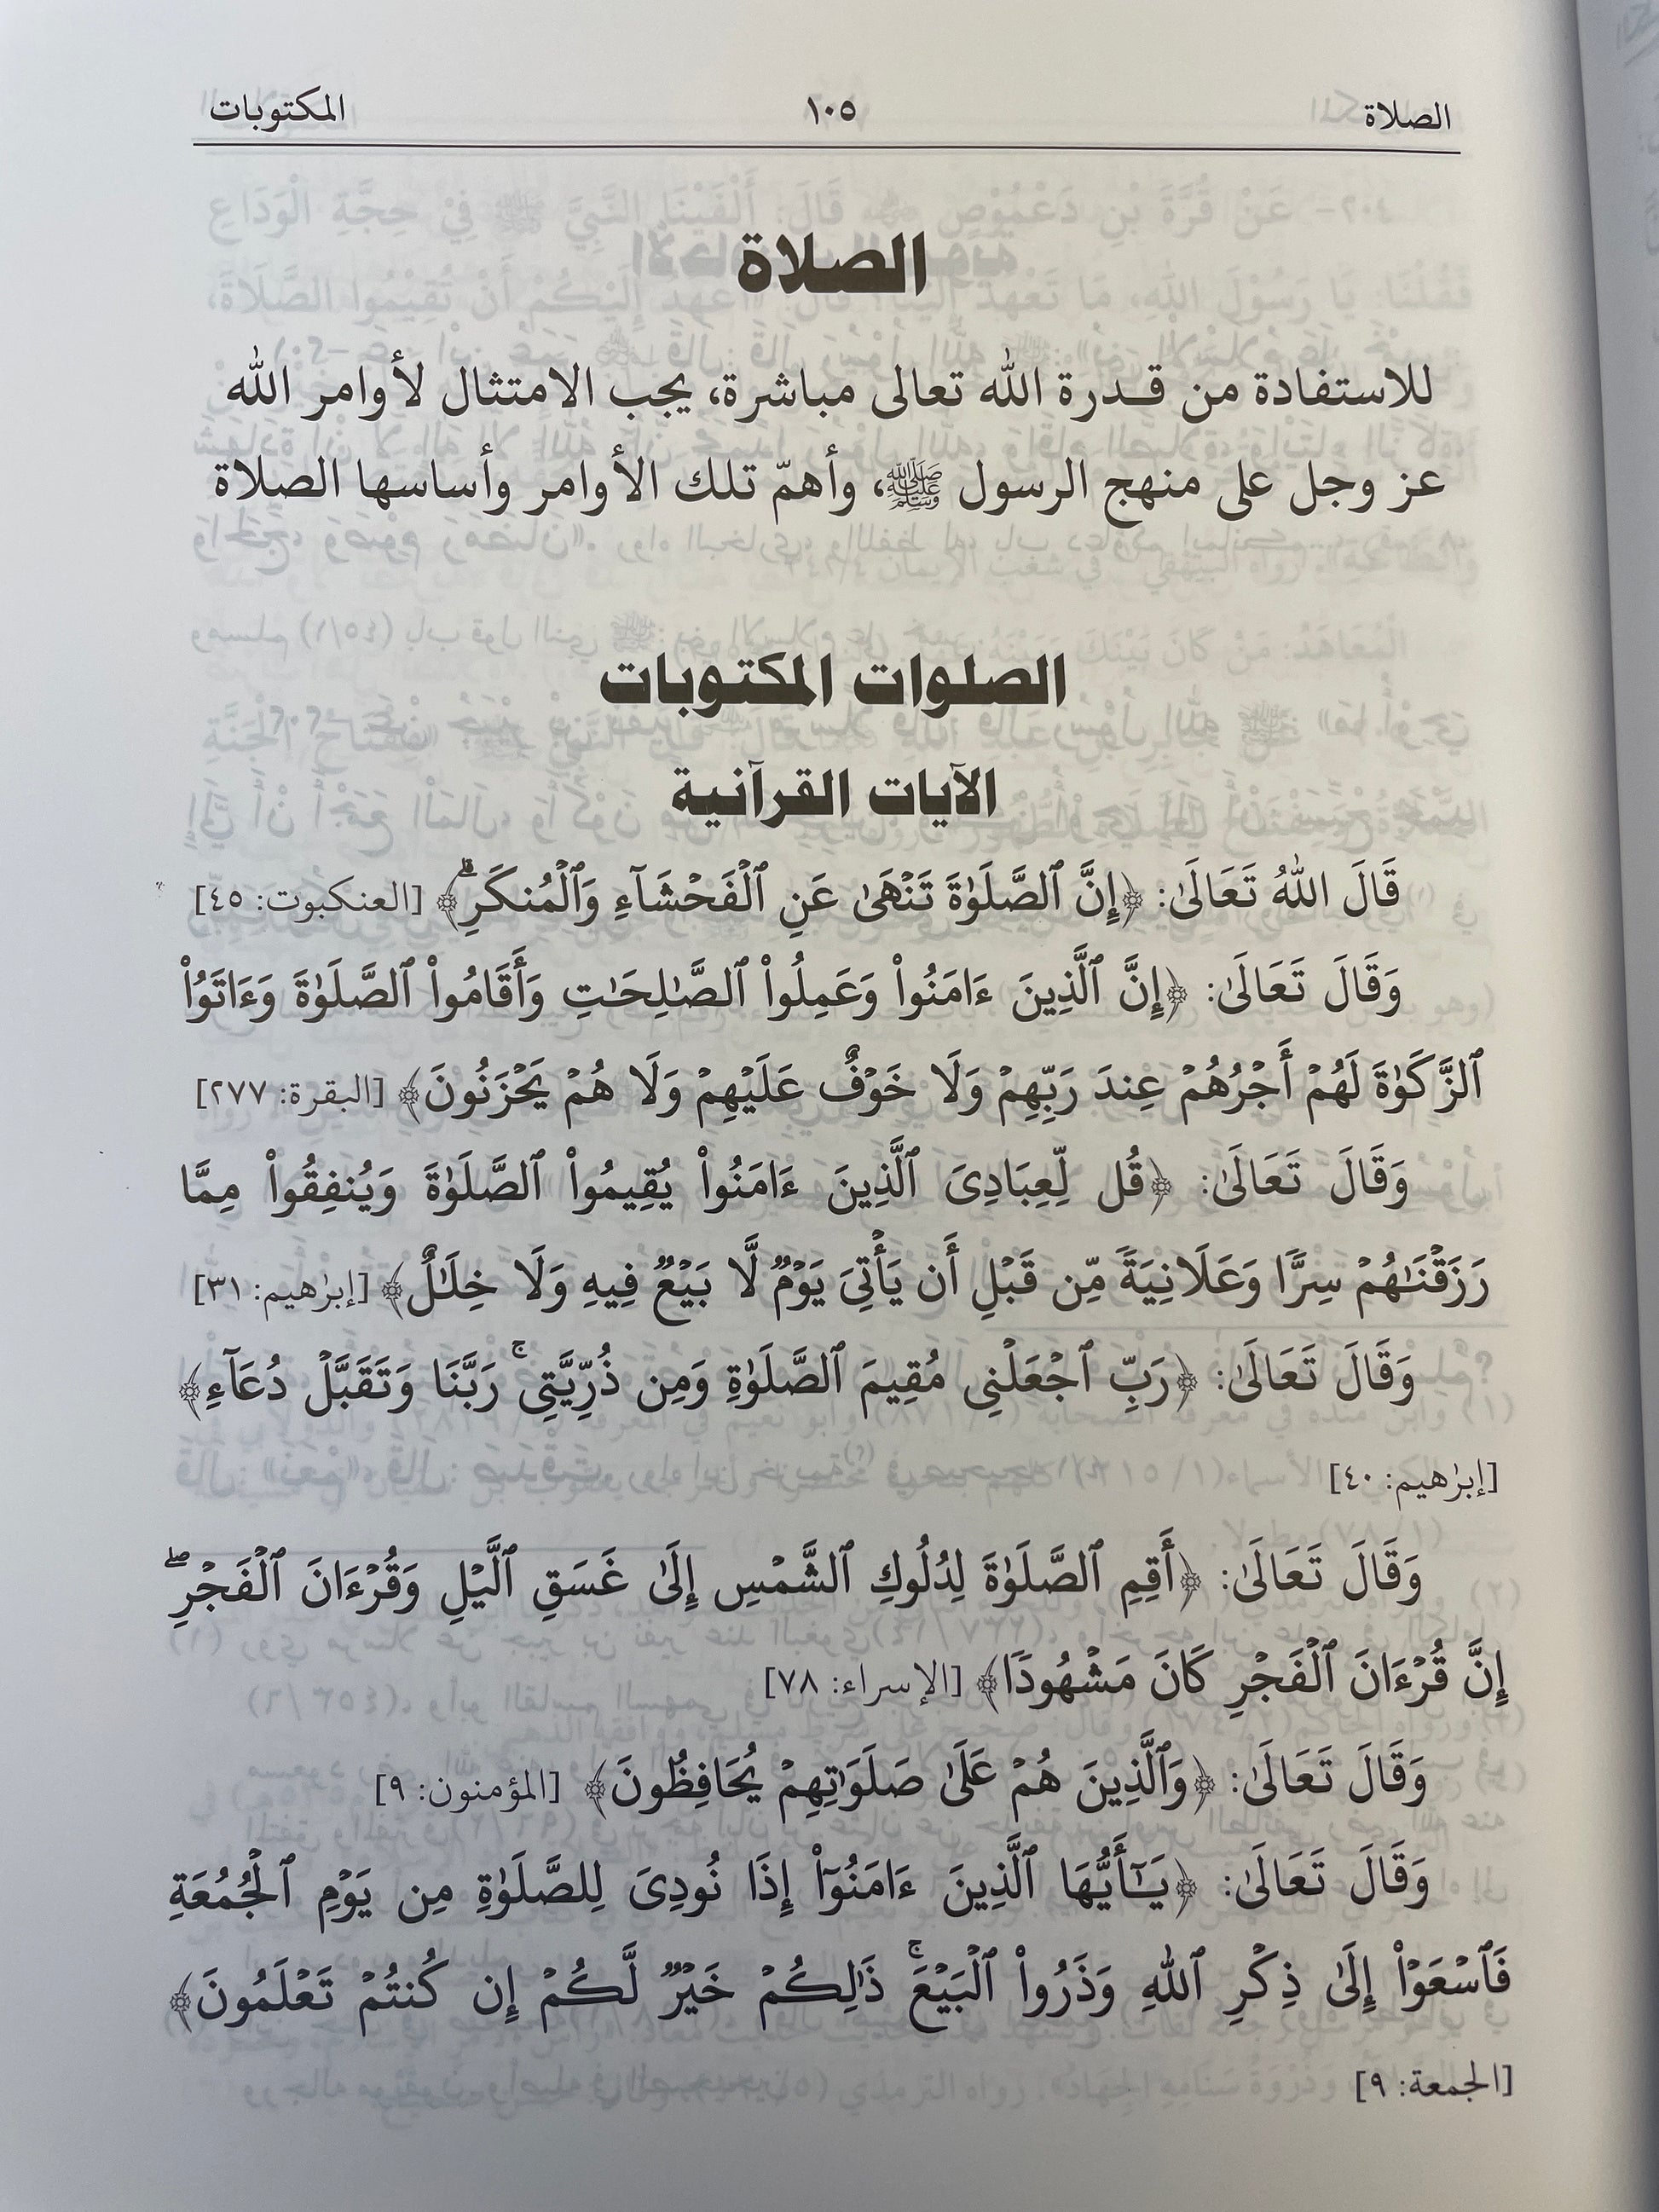 الصلاة ١٠٥ المكتوبات
الصلاة
للاستفادة من قدرة الله تعالى مباشرة، يجب الامتثال لأوامر الله
عز وجل على منهج الرسول ﷺ، وأهمّ تلك الأوامر وأساسها الصلاة
الصلوات المكتوبات
الآيات القرآنية
قَالَ اللهُ تَعَالَىٰ: ﴿إِنَّ ٱلصَّلَوٰةَ تَنْهَىٰ عَنِ ٱلْفَحْشَآءِ وَٱلْمُنكَرِ ۗ﴾ [العنكبوت: ٤٥]
وَقَالَ تَعَالَىٰ: ﴿إِنَّ ٱلَّذِينَ ءَامَنُوا۟ وَعَمِلُوا۟ ٱلصَّـٰلِحَـٰتِ وَأَقَامُوا۟ ٱلصَّلَوٰةَ وَءَاتَوُا۟
ٱلزَّكَوٰةَ لَهُمْ أَجْرُهُمْ عِندَ رَبِّهِمْ وَلَا خَوْفٌ عَلَيْهِمْ وَلَا هُمْ يَحْزَنُونَ﴾ [البقرة: ٢٧٧]
وَقَالَ تَعَالَىٰ: ﴿قُل لِّعِبَادِىَ ٱلَّذِينَ ءَامَنُوا۟ يُقِيمُوا۟ ٱلصَّلَوٰةَ وَيُنفِقُوا۟ مِمَّا
رَزَقْنَـٰهُمْ سِرًّا وَعَلَانِيَةً مِّن قَبْلِ أَن يَأْتِىَ يَوْمٌ لَّا بَيْعٌ فِيهِ وَلَا خِلَـٰلٌ﴾ [إبرٰهيم: ٣١]
وَقَالَ تَعَالَىٰ: ﴿رَبِّ ٱجْعَلْنِى مُقِيمَ ٱلصَّلَوٰةِ وَمِن ذُرِّيَّتِى ۚ رَبَّنَا وَتَقَبَّلْ دُعَآءِ﴾
[إبرٰهيم: ٤٠]
وَقَالَ تَعَالَىٰ: ﴿أَقِمِ ٱلصَّلَوٰةَ لِدُلُوكِ ٱلشَّمْسِ إِلَىٰ غَسَقِ ٱلَّيْلِ وَقُرْءَانَ ٱلْفَجْرِ ۖ
إِنَّ قُرْءَانَ ٱلْفَجْرِ كَانَ مَشْهُودًا﴾ [الإسراء: ٧٨]
وَقَالَ تَعَالَىٰ: ﴿وَٱلَّذِينَ هُمْ عَلَىٰ صَلَوَٰتِهِمْ يُحَافِظُونَ﴾ [المؤمنون: ٩]
وَقَالَ تَعَالَىٰ: ﴿يَـٰٓأَيُّهَا ٱلَّذِينَ ءَامَنُوٓا۟ إِذَا نُودِىَ لِلصَّلَوٰةِ مِن يَوْمِ ٱلْجُمُعَةِ
فَٱسْعَوْا۟ إِلَىٰ ذِكْرِ ٱللَّهِ وَذَرُوا۟ ٱلْبَيْعَ ۚ ذَٰلِكُمْ خَيْرٌ لَّكُمْ إِن كُنتُمْ تَعْلَمُونَ﴾
[الجمعة: ٩]